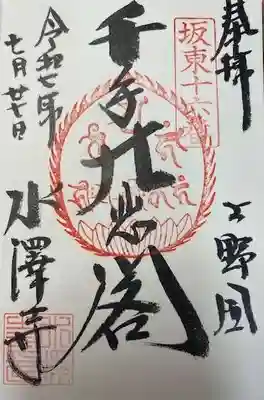 奉拝
上野国
坂東十六番
千手大悲閣
水澤寺
令和七年
七月廿七日